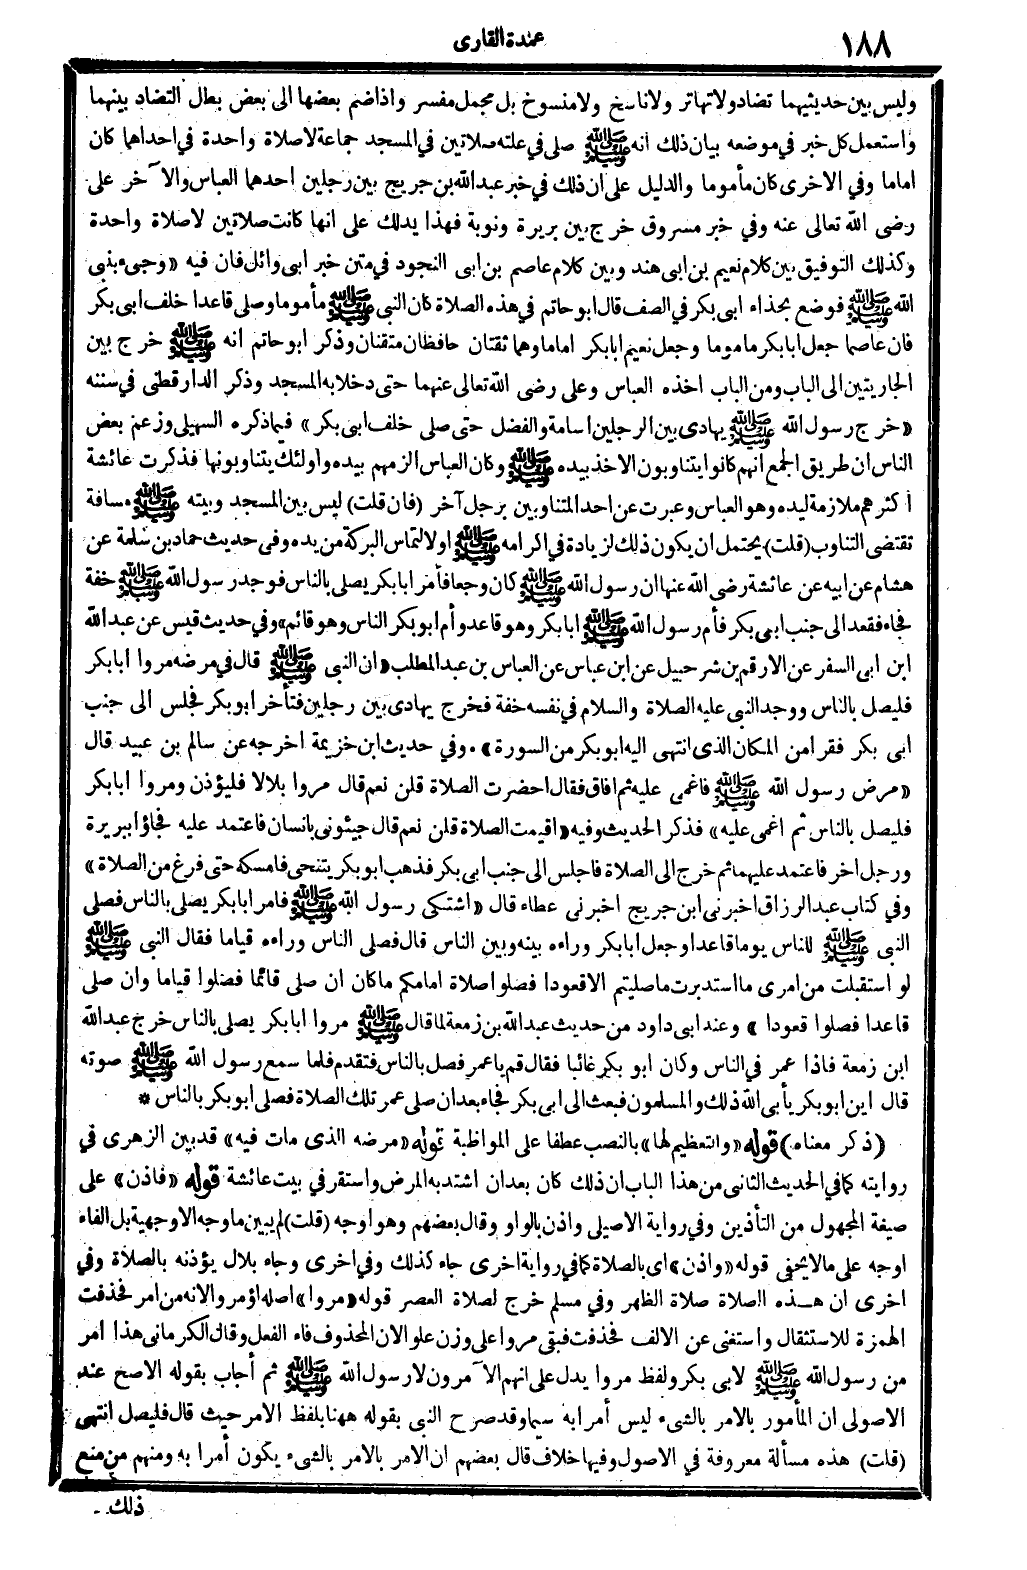 ١٨٨
عمدة القارى
وليس بين حديثيهما تضاد ولا تهاتر ولا ناسخ ولا منسوخ بل مجمل مفسر واذا ضم بعضها الى بعض بطل التضاد بينهما
واستعمل كل خبر في موضعه بيان ذلك انه ﷺ صلى في علته صلاتين في المسجد جماعة لا صلاة واحدة في احداهما كان
اماما وفي الاخرى كان مأموما والدليل على ان ذلك في خبر عبدالله بن جريج بين رجلين احدهما العباس والآخر على
رضى الله تعالى عنه وفي خبر مسروق خرج بين بريرة ونوبة فهذا يدلك على انها كانت صلاتين لا صلاة واحدة
وكذلك التوفيق بين كلام نعيم بن ابى هند وبين كلام عاصم بن ابى النجود في متن خبر ابى وائل فان فيه «وجىء بنبى
الله ﷺ فوضع بحذاء ابى بكر في الصف قال ابو حاتم في هذه الصلاة كان النبى ﷺ مأموما وصلى قاعدا خلف ابى بكر
فان عاصما جعل ابا بكر ماموما وجعل نعيم ابابكر اماما وهما ثقتان حافظان متقنان وذكر ابو حاتم انه ﷺ خرج بين
الجاريتين الى الباب ومن الباب اخذه العباس وعلى رضى الله تعالى عنهما حتى دخلا به المسجد وذكر الدارقطنى في سننه
«خرج رسول الله ﷺ يهادى بين الرجلين اسامة والفضل حتى صلى خلف ابى بكر» فيما ذكره السهيلى وزعم بعض
الناس ان طريق الجمع انهم كانوا يتناوبون الاخذ بيده ﷺ وكان العباس الزمهم بيده واولئك يتناوبونها فذكرت عائشة
أكثرهم ملازمة ليده وهو العباس وعبرت عن احد المتناوبين برجل آخر (فان قلت) ليس بين المسجد وبيته ﷺ مسافة
تقتضى التناوب (قلت) يحتمل ان يكون ذلك لزيادة في اكرامه ﷺ اولا لتماس البركة من يده وفى حديث حماد بن سلمة عن
هشام عن ابيه عن عائشة رضى الله عنها ان رسول الله ﷺ كان وجعا فأمر ابا بكر يصلى بالناس فوجد رسول الله ﷺ خفة
فجاء فقعد الى جنب ابى بكر فأم رسول الله ﷺ ابا بكر وهو قاعد وأم ابو بكر الناس وهو قائم» وفي حديث قيس عن عبدالله
ابن ابى السفر عن الارقم بن شرحبيل عن ابن عباس عن العباس بن عبد المطلب «ان النبى ﷺ قال في مرضه مروا ابابكر
فليصل بالناس ووجد النبى عليه الصلاة والسلام في نفسه خفة فخرج يهادى بين رجلين فتأخر ابو بكر فجلس الى جنب
ابى بكر فقرا من المكان الذى انتهى اليه ابو بكر من السورة» . وفي حديث ابن خزيمة اخرجه عن سالم بن عبيد قال
«مرض رسول الله ﷺ فاغمى عليه ثم افاق فقال احضرت الصلاة قلن نعم قال مروا بلالا فليؤذن ومروا ابابكر
فليصل بالناس ثم اغمى عليه» فذكر الحديث وفيه «اقيمت الصلاة قلن نعم قال جيئونى بانسان فاعتمد عليه فجاؤا ببريرة
ورجل اخر فاعتمد عليهما ثم خرج الى الصلاة فاجلس الى جنب ابى بكر فذهب ابو بكر يتنحى فامسكه حتى فرغ من الصلاة»
وفي كتاب عبد الرزاق اخبرنى ابن جريج اخبرنى عطاء قال «اشتكى رسول الله ﷺ فامر ابابكر يصلى بالناس فصلى
النبى ﷺ للناس يوما قاعدا وجعل ابابكر وراءه بينه وبين الناس قال فصلى الناس وراءه قياما فقال النبى ﷺ
لو استقبلت من امرى ما استدبرت ما صليتم الا قعودا فصلوا صلاة امامكم ما كان ان صلى قائما فصلوا قياما وان صلى
قاعدا فصلوا قعودا » وعند ابى داود من حديث عبدالله بن زمعة لما قال ﷺ مروا ابابكر يصلى بالناس خرج عبدالله
ابن زمعة فاذا عمر في الناس وكان ابو بكر غائبا فقال قم ياعمر فصل بالناس فتقدم فلما سمع رسول الله ﷺ صوته
قال اين ابو بكر يأبى الله ذلك والمسلمون فبعث الى ابى بكر فجاء بعد ان صلى عمر تلك الصلاة فصلى ابو بكر بالناس *
(ذكر معناه) قوله «والتعظيم لها» بالنصب عطفا على المواظبة قوله «مرضه الذى مات فيه» قد بين الزهرى في
روايته كما في الحديث الثانى من هذا الباب ان ذلك كان بعد ان اشتد به المرض واستقر في بيت عائشة قوله «فاذن» على
صيغة المجهول من التأذين وفي رواية الاصيلى واذن بالواو وقال بعضهم وهو اوجه (قلت) لم يبين ما وجه الاوجهية بل الفاء
اوجه على مالا يخفى قوله «واذن» اى بالصلاة كما في رواية اخرى جاء كذلك وفي اخرى وجاء بلال يؤذنه بالصلاة وفي
اخرى ان هذه الصلاة صلاة الظهر وفي مسلم خرج لصلاة العصر قوله «مروا» اصله اؤمروا لانه من امر فحذفت
الهمزة للاستثقال واستغنى عن الالف فحذفت فبقى مروا على وزن علوا لان المحذوف فاء الفعل وقال الكرمانى هذا امر
من رسول الله ﷺ لابى بكر ولفظ مروا يدل على انهم الآمرون لا رسول الله ﷺ ثم أجاب بقوله الاصح عند
الاصولى ان المأمور بالامر بالشىء ليس أمرا به سيما وقد صرح النبى بقوله ههنا بلفظ الامر حيث قال فليصل انتهى
(قلت) هذه مسألة معروفة في الاصول وفيها خلاف قال بعضهم ان الامر بالامر بالشىء يكون أمرا به ومنهم من منع
ذلك -